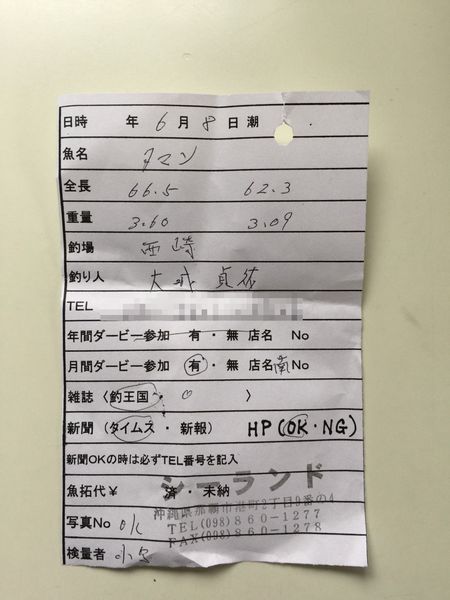 日時 年 6 月 8 日 潮
魚名 タマン
全長 66.5 62.3
重量 3.60 3.09
釣場 西崎
釣り人 大城 貞
TEL
年間ダービー参加 有・無 店名 No
月間ダービー参加 有・無 店名 南 No
雑誌〈釣王国・ 〉
新聞(タイムス・新報) HP(OK・NG)
新聞OKの時は必ずTEL番号を記入
魚拓代¥ 済・未納
シーランド
沖縄県那覇市港町2丁目9番の4
写真No OK
TEL(098)860-1277
FAX(098)860-1278
検量者 小